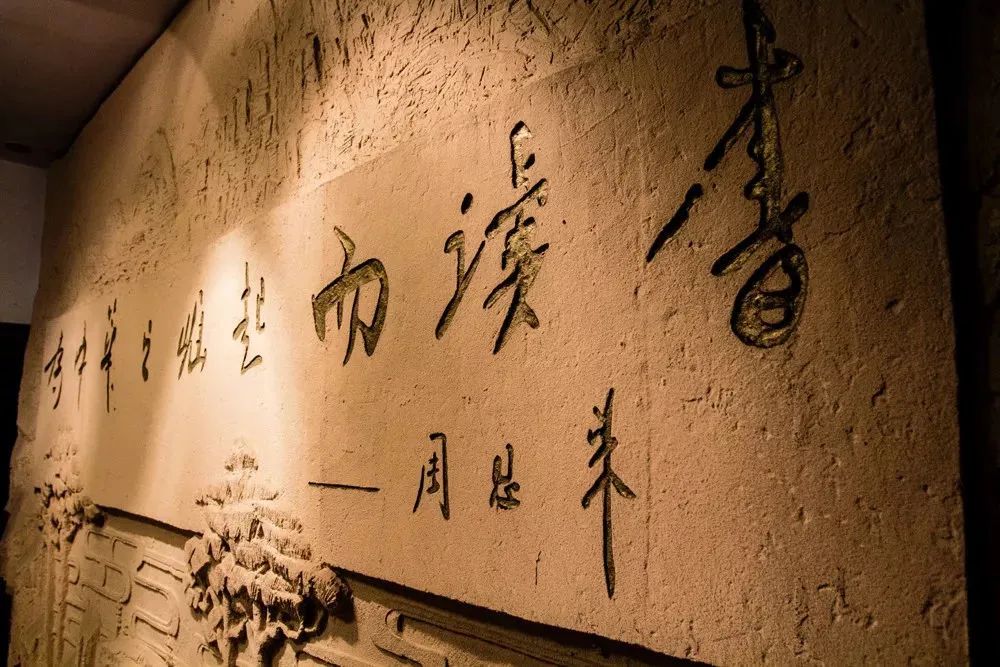 为中华之崛起而读书
——周恩来